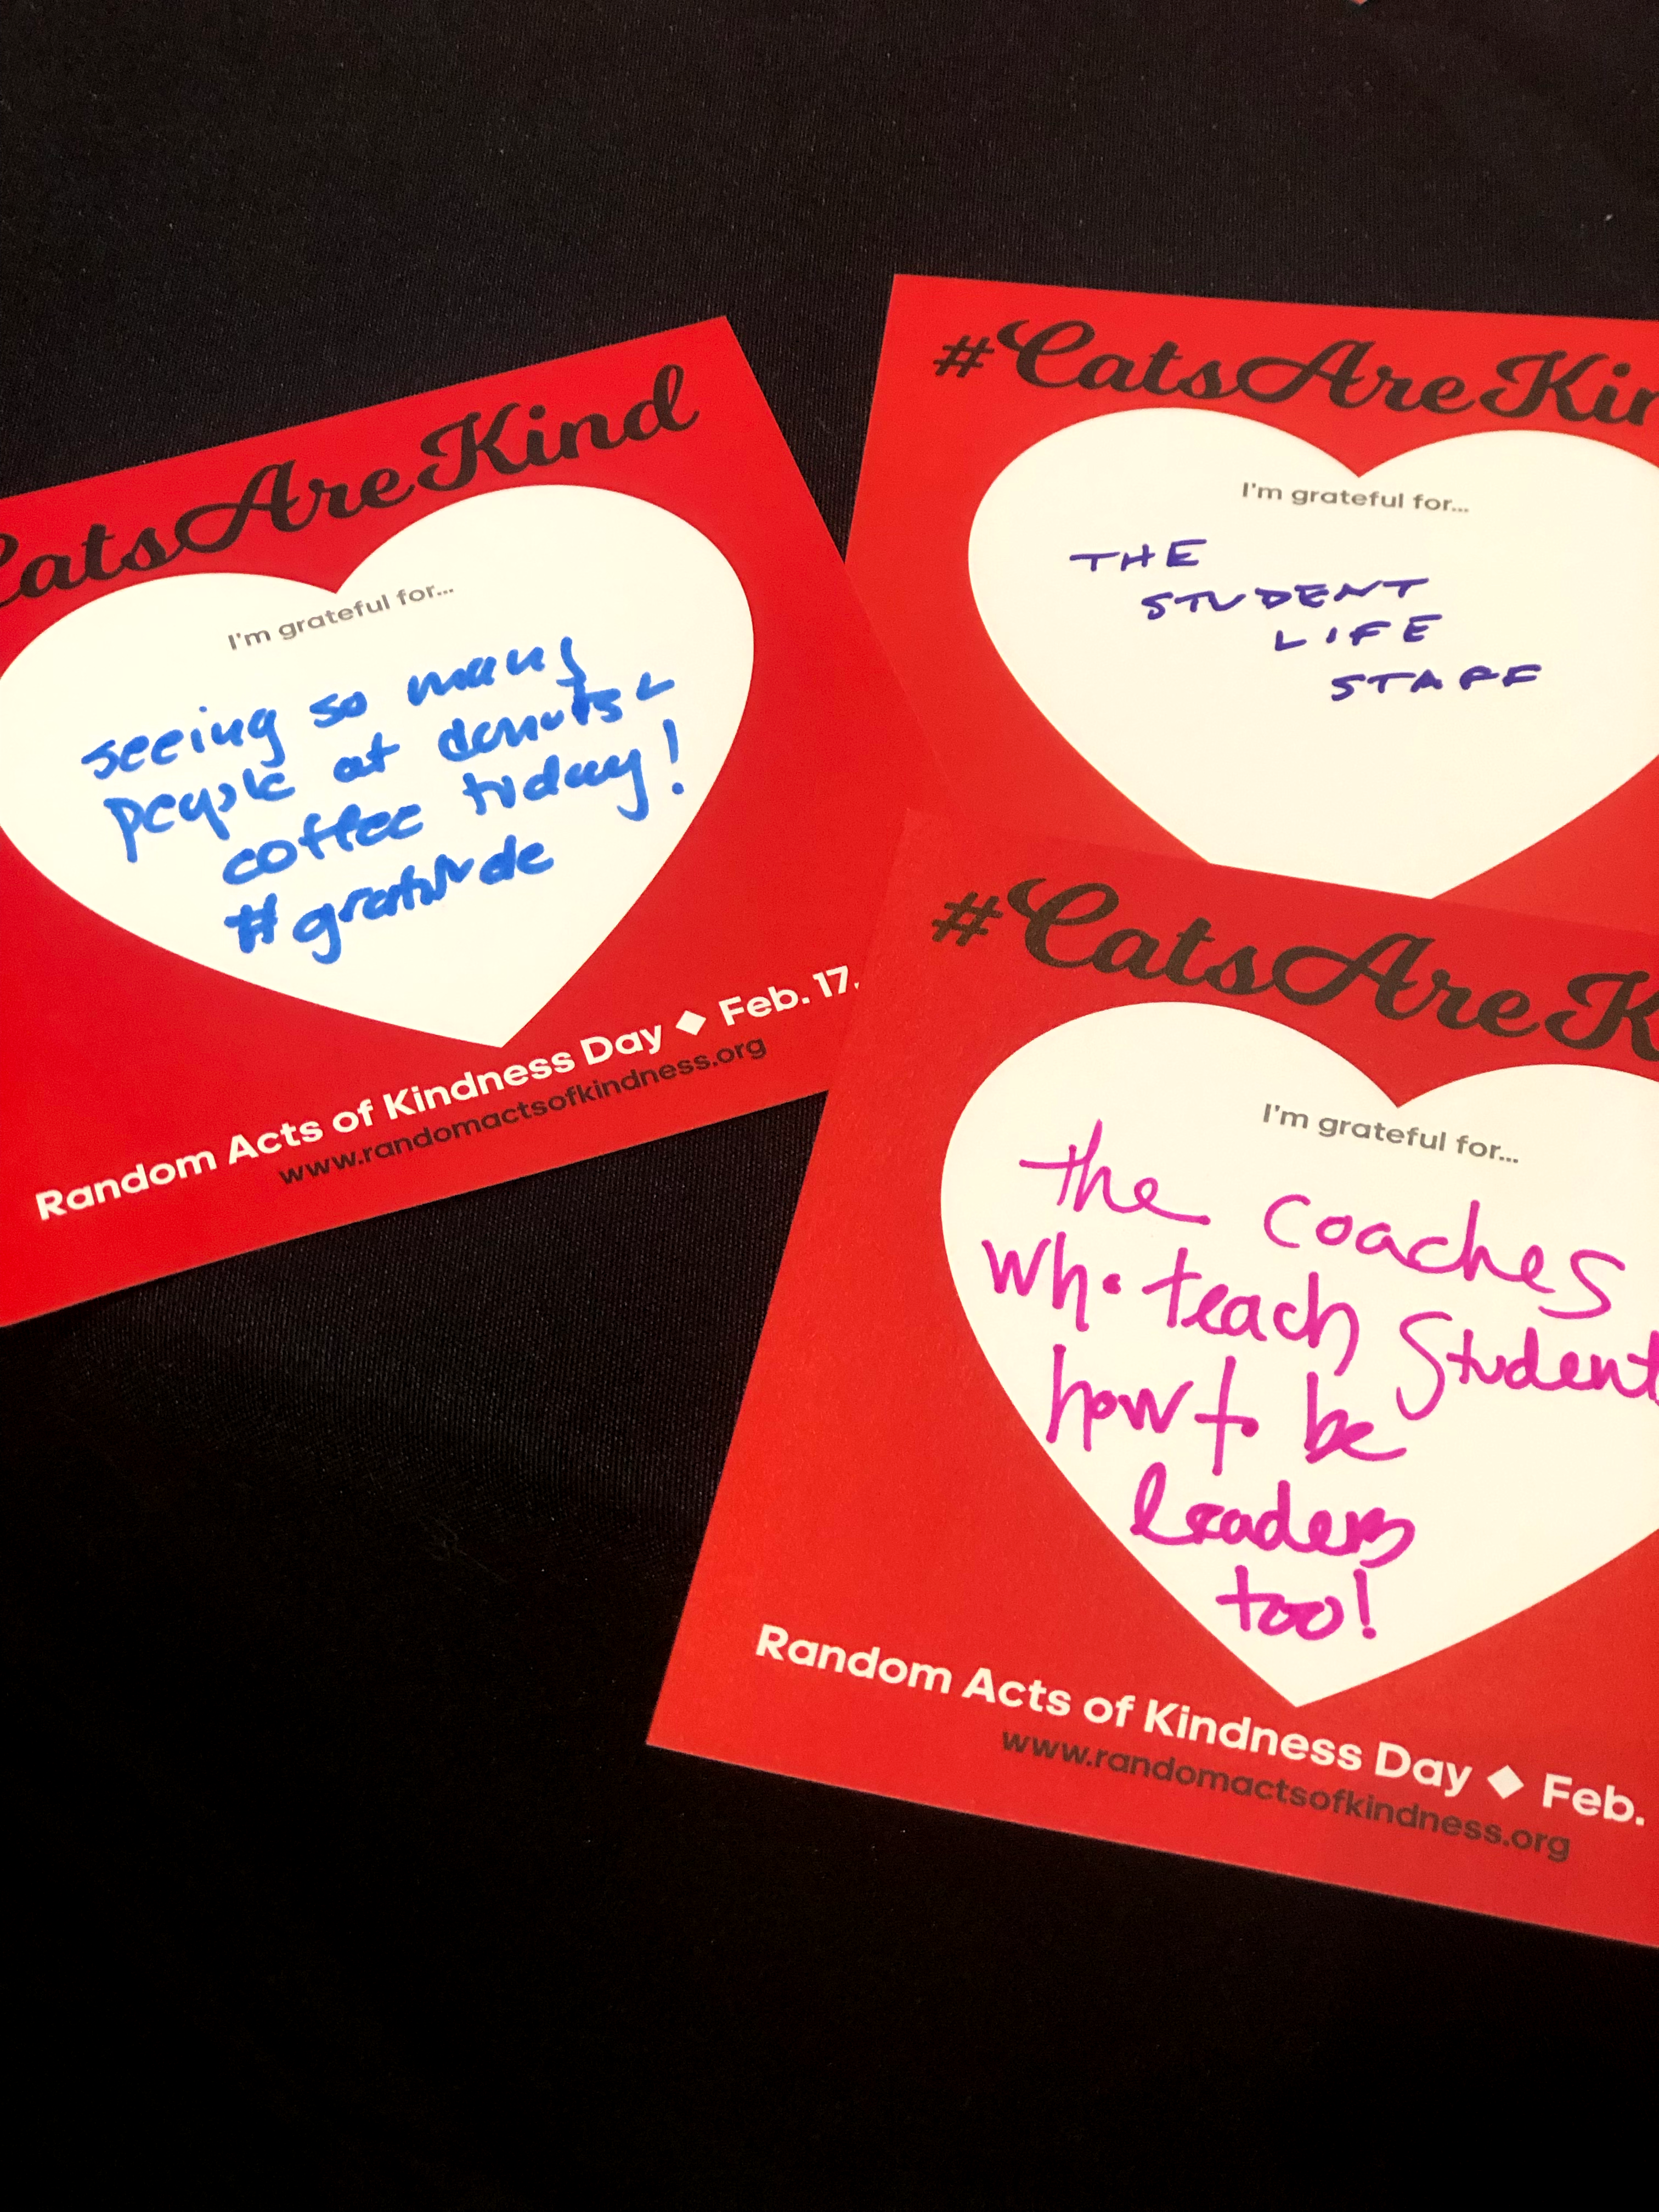 CatsAreKind
I'm grateful for...
seeing so many
people at donuts &
coffee today!
#gratitude
Random Acts of Kindness Day ◆ Feb. 17,
www.randomactsofkindness.org
#CatsAreKin
I'm grateful for...
THE
STUDENT
LIFE
STAFF
#CatsAreK
I'm grateful for...
the coaches
who teach Student
how to be
leaders
too!
Random Acts of Kindness Day ◆ Feb.
www.randomactsofkindness.org